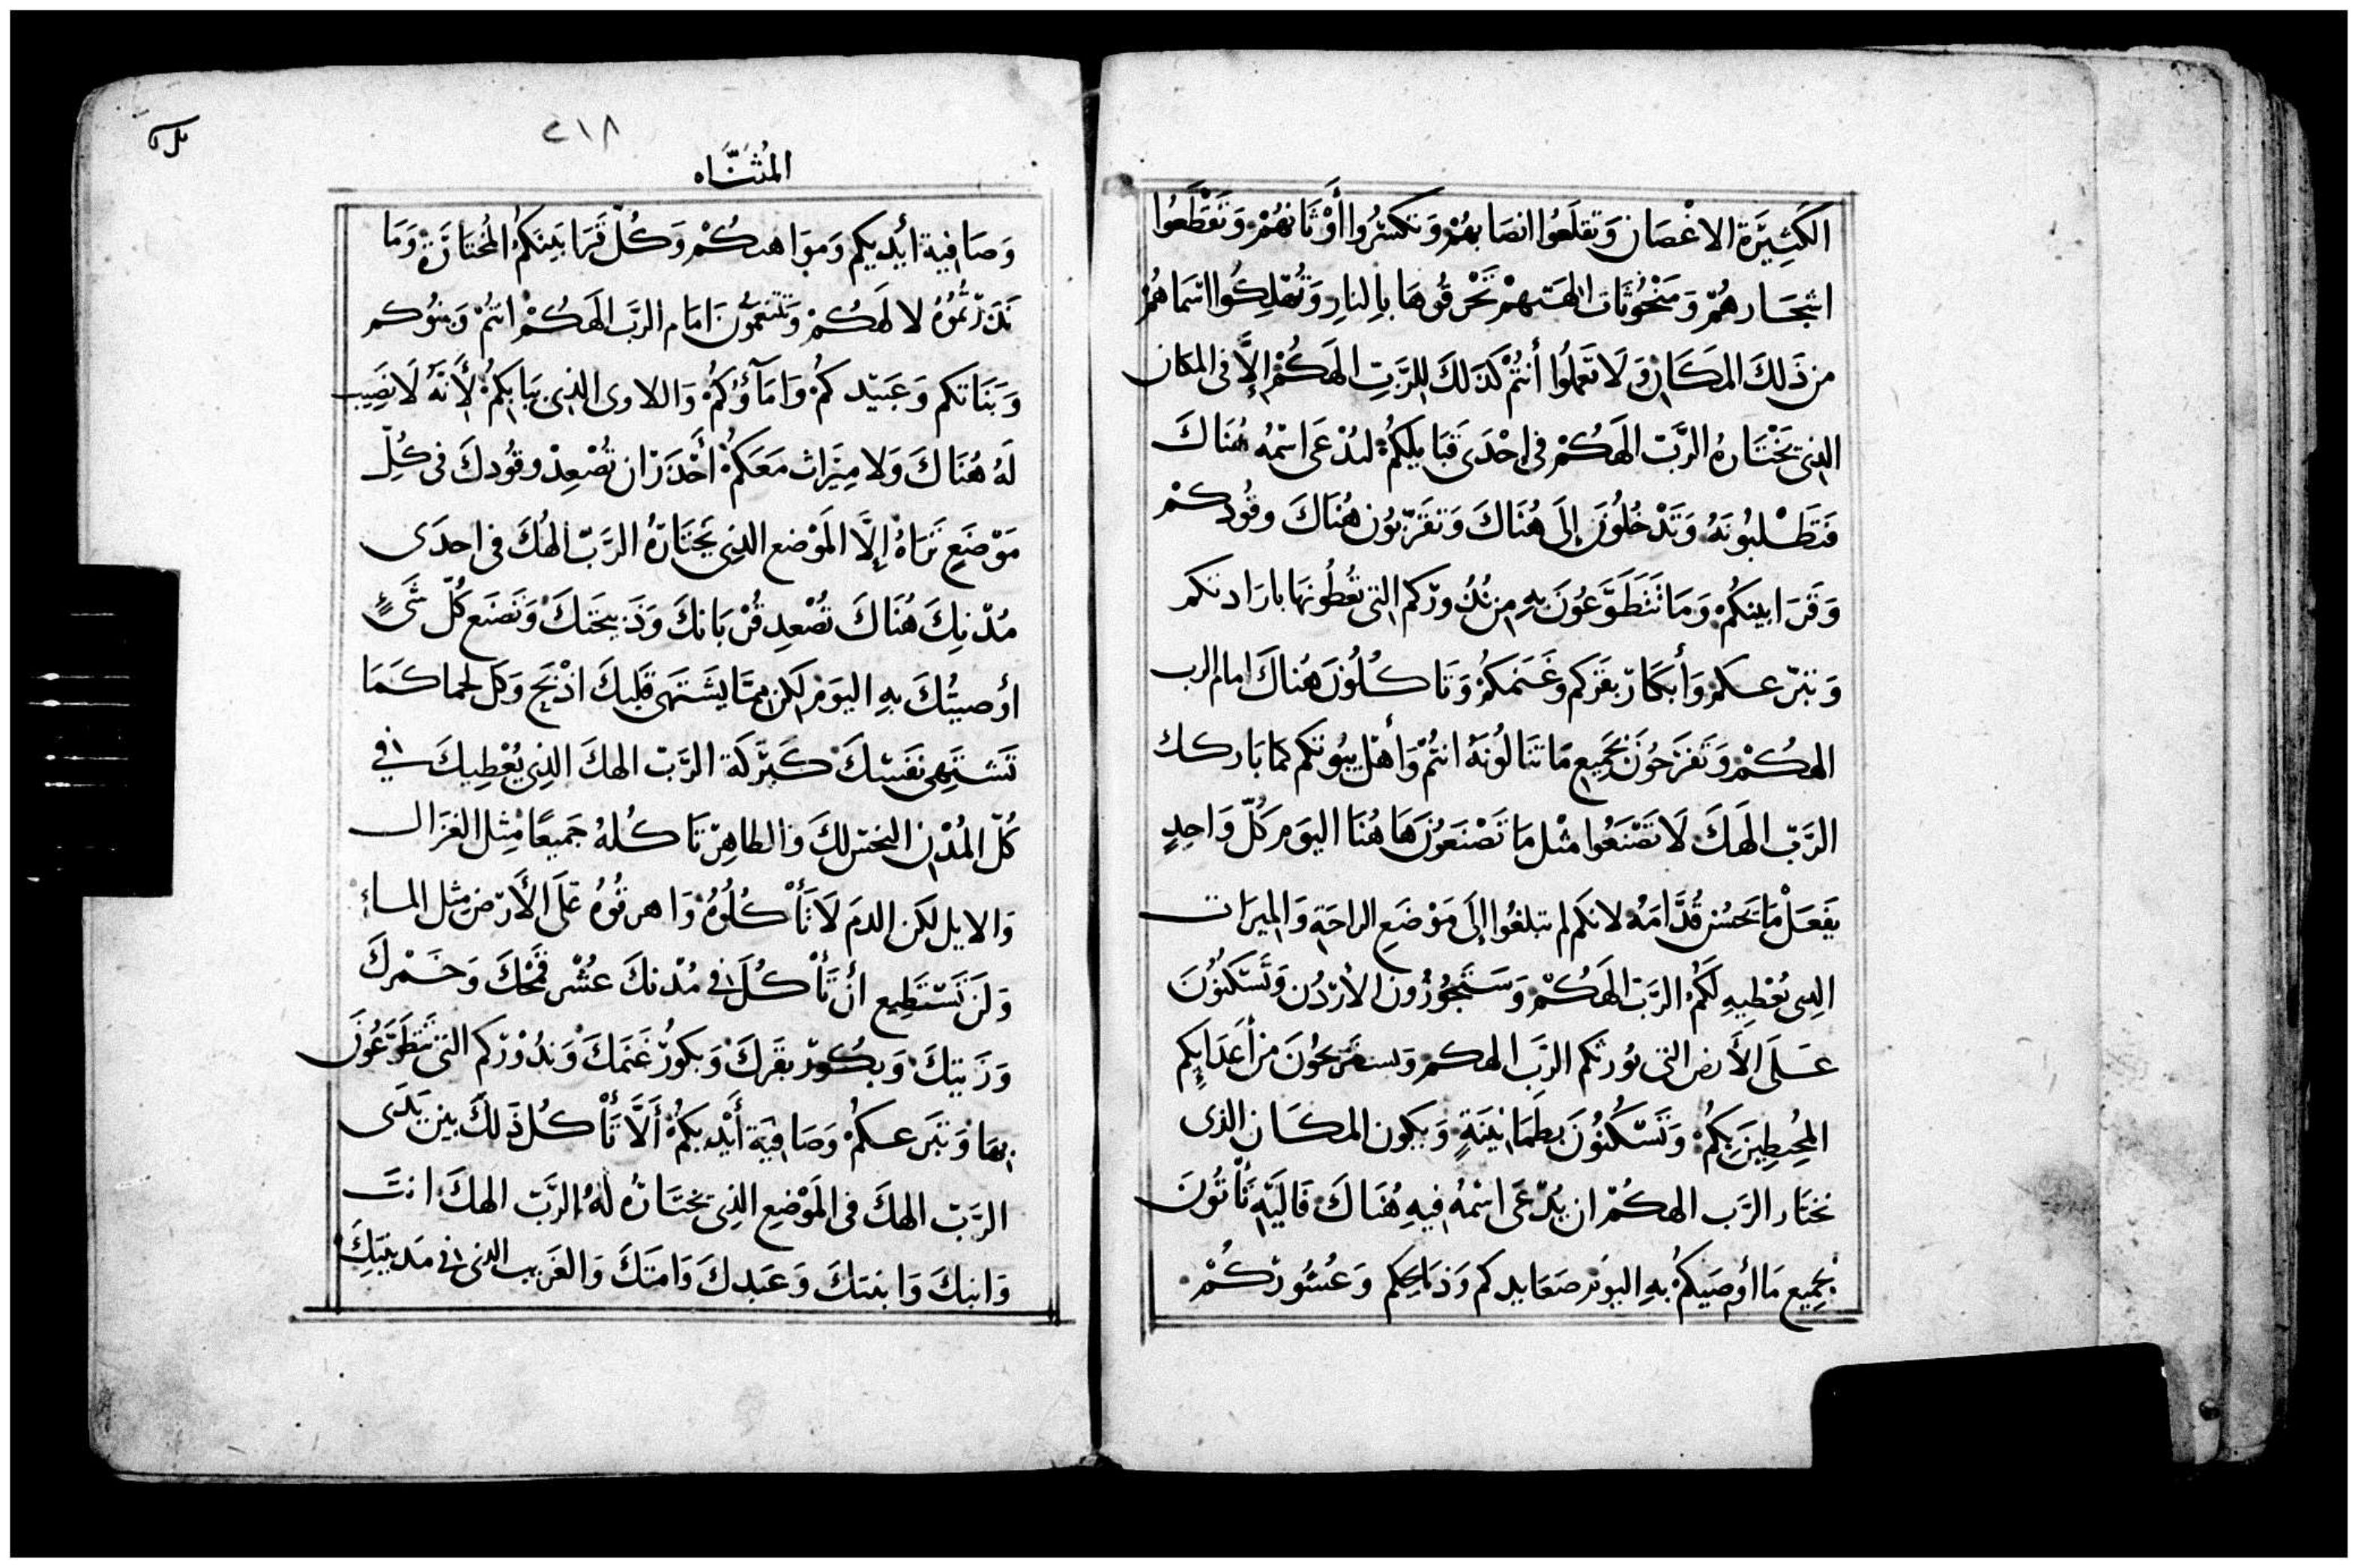 الكَثِيرَة الاغْصَان وَتقلَعُوا انصَابهُمْ وَتكسّرُوا أَوْثَانهُمْ وَتَقْطَعُوا
اشجَارهُمْ وَمَنْحُوتَات الهَتهمْ تَحْرقُوهَا بِالنارِ وَتُهْلِكُوا اسْمَاهُمْ
من ذَلكَ المَكَانِ وَلَا تَعمَلُوا أَنتُمْ كَذلكَ للرَّبِّ الَهَكُمْ إِلاَّ فى المكان
الذِى يَخْتَارهُ الرَّبّ الَهَكُمْ فى إِحْدَى قَبَايلِكُمْ لندْعَى اسْمهُ هُنَاكَ
فَتَطْلبُونَهُ وَتَدْخُلُونَ إِلَى هُنَاكَ وَتقَرّبُون هُنَاكَ وقُودكمْ
وَقَرَابينكُمْ وَمَا تَتَطَوَّعُونَ بِهِ مِن نُذُورّكم التى تعُطُونهَا بارَادتكم
وَتبرّعكمْ وَأَبكَارّ بقَركم وَغَنمكُمْ وَتَاكُلُونَ هُنَاكَ امام الرب
الهكُمْ وَتَفرَحُونَ بجَمِيع مَا تنَالُونَهُ انتُمْ وَأَهْل بيُوتكم كما باركك
الرَّبّ الَهكَ لَا تَصْنَعُوا مثْل مَا تَصْنَعُونَ هَا هُنَا اليوَم كلّ وَاحدٍ
يَفعَلْ مَا يَحسُن قُدَّامَهُ لانكم لم تبلغُوا إِلَى مَوْضَعِ الراحَةِ وَالمِيرَات
الذِى يُعْطِيهِ لَكُمُ الرَّبّ الَهَكُمْ وَسَتَجُوزُونَ الأرْدُن وَتَسْكنُونَ
عَلَى الأَرض التى يُورثكم الرَّب الهكم وَستَستَرِيحُونَ من أَعدَايِكم
المُحِيطِينَ بِكمُ وَتَسْكُنُونَ بطمَانينَةٍ وَيكون المكَان الذى
يختَار الرَّب الهكُمْ ان يُدْعَى اسْمهُ فِيهِ هُنَاكَ فَاليَهِ تَأْتُونَ
بجَمِيع مَا أوصَيكُمُ بهِ اليوَم صَعَايدكم وَذبَايحِكم وَعُشُورّكُمْ
٢١٨
المُثنَّاه
وَصَافية أيْديكم وَموَاهبكُمْ وَكُلّ قَرَابَينكمُ المُختَارَةْ وَمَا
نَذرْتُمُوُهُ لالهكُمْ وَتتنعَمُّونَ امَام الرَّبّ الَهَكُمْ انتُمْ وَبنُوكم
وَبَنَاتكم وَعَبَيْدكمُ وَامَآؤُكُمْ وَاللاوى الذِى بَبَابكمُ لأَنَّهُ لَا نَصِيب
لَهُ هُنَاكَ وَلا مِيَراث مَعَكمُْ أَحْذَرْ ان تُصْعِدْ وقُودكَ فى كُلِّ
مَوْضَعِ تَرَاهُ إِلَّا المَوْضع الذِى يَختَارّهُ الرَّبّ الهُكَ فى احدَى
مُدْنِكَ هُنَاكَ تُصْعِد قُرْبَانكَ وَذَبيحَتكَ وَتَصْنَع كُلّ شَىْءٍ
أوصيتُكَ بهِ اليوَم لكن ممّا يشَتهَى قَلبكَ اذْبَحْ وَكل لحما كَمَا
تَشتَهِى نَفسْكَ كَبَرّكَة الرَّبّ الهكَ الذِى يُعْطِيكَ فى
كُلّ المُدْن النجسْ لكَ وَالطاهِرْ تَاكُلهُ جَمِيعًا مْثِل الغزَال
وَالايل لكَن الدمَ لَا تَأْكُلُوهُ وَاهرقُوهُ عَلَى الأَرْض مثل الماءِ
وَلَن تَسْتَطِيع أَنْ تَأْكُلَ فى مُدْنكَ عُشْر قمَحْكَ وَخَمْركَ
وَزَيتكَ وَبكُورّ بقَركَ وَبكورُ غَنمكَ وَنذُوْرّكم التى تَتطَوّعُونَ
بهَا وَتبَرعكمُْ وَصَافيَة أَيْديكمُ أَلَّا تَأْكُل ذَلكَ بين يَدَى
الرَّبّ الهكَ فى المَوْضِع الذِى يختَارُه لَهُ الرَّبّ الهكَ انتَ
وَابنكَ وَابنتكَ وَعَبدكَ وَامتَكَ وَالغَريب الذى فى مَدينتِكَ